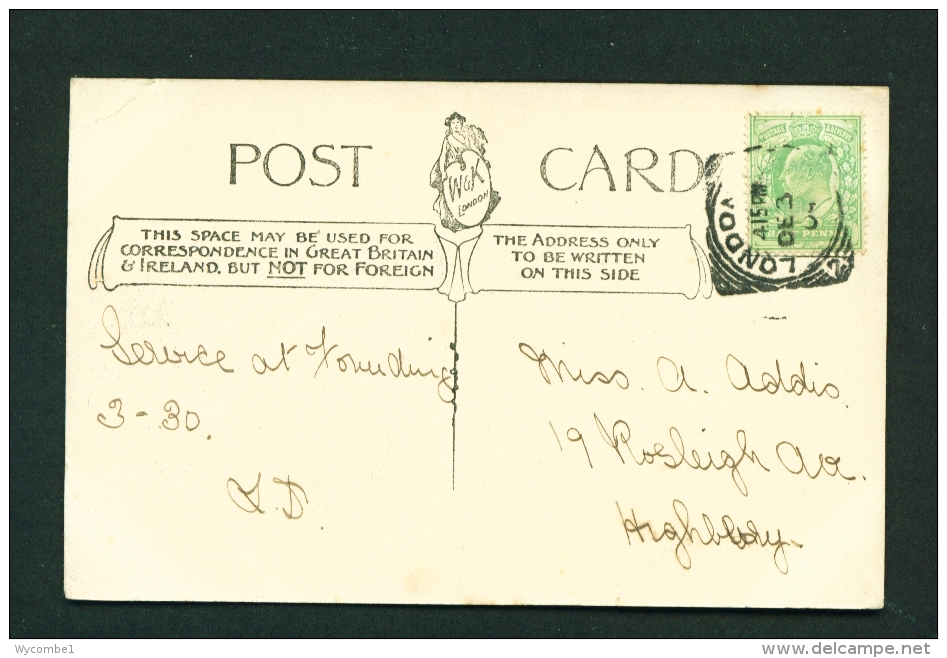 POST CARD
W&K
LONDON
THIS SPACE MAY BE USED FOR
CORRESPONDENCE IN GREAT BRITAIN
& IRELAND, BUT NOT FOR FOREIGN
THE ADDRESS ONLY
TO BE WRITTEN
ON THIS SIDE
POSTAGE & REVENUE
HALF PENNY
LONDON
4 15 PM
DE 3
Service at Foundling
3-30.
Miss. A. Addis.
19 Rosleigh Ave.
Highbury.
Wycombe1
www.delcampe.net